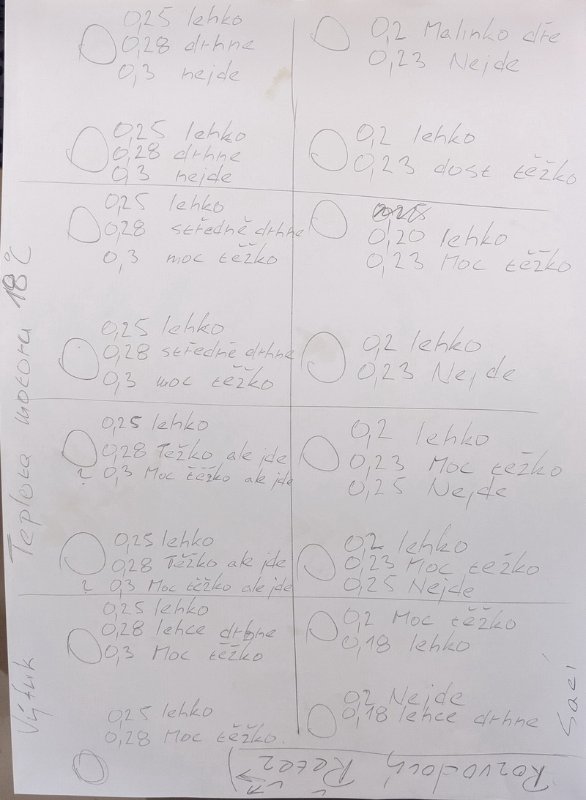 0,25 lehko
0,28 drhne
0,3 nejde
0,2 Malinko dře
0,23 Nejde
0,25 lehko
0,28 drhne
0,3 nejde
0,2 lehko
0,23 dost těžko
0,25 lehko
0,28 středně drhne
0,3 moc těžko
0,20 lehko
0,23 Moc těžko
0,25 lehko
0,28 středně drhne
0,3 moc těžko
0,2 lehko
0,23 Nejde
0,25 lehko
0,28 Těžko ale jde
? 0,3 Moc těžko ale jde
0,2 lehko
0,23 Moc těžko
0,25 Nejde
0,25 lehko
0,28 Těžko ale jde
? 0,3 Moc těžko ale jde
0,2 lehko
0,23 Moc těžko
0,25 Nejde
0,25 lehko
0,28 lehce drhne
0,3 Moc těžko
0,2 Moc těžko
0,18 lehko
0,25 lehko
0,28 Moc těžko.
0,2 Nejde
0,18 lehce drhne
Teplota motoru 18°C
Výfuk
Sací
Rozvodový
Řetěz